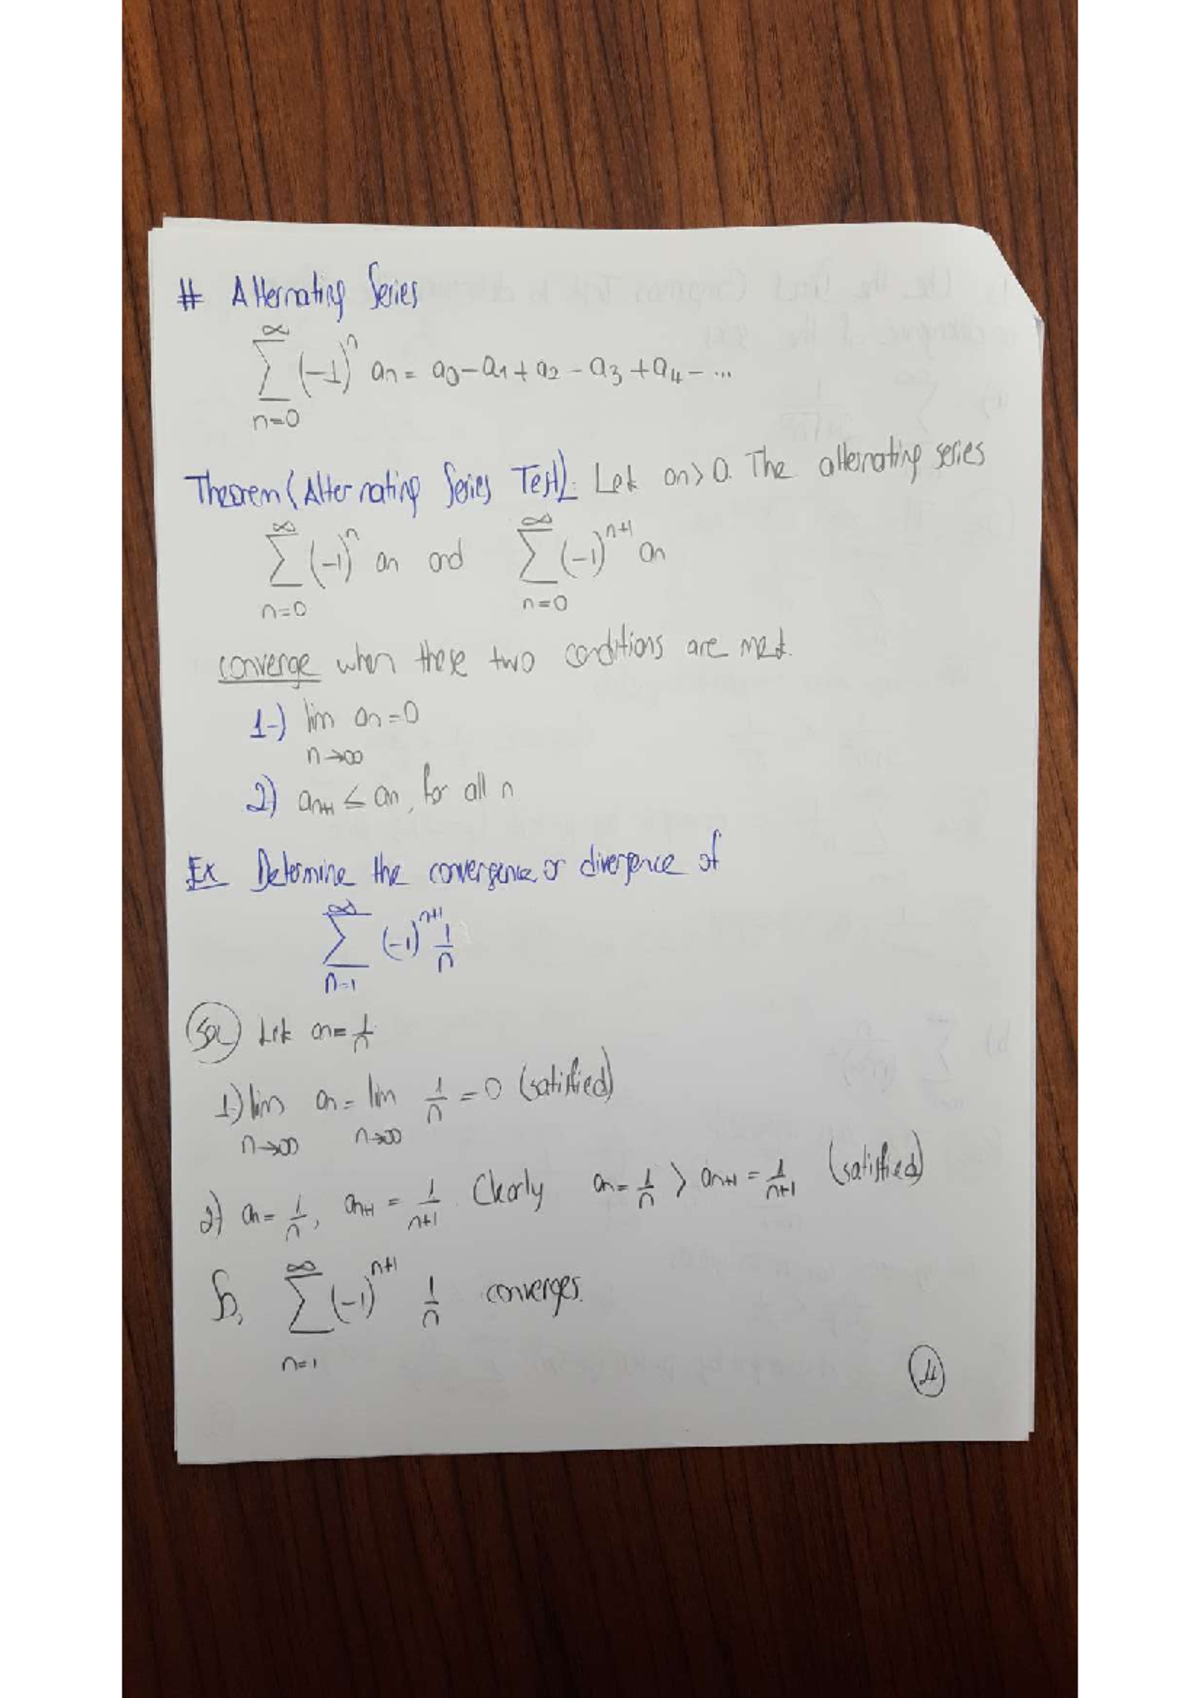 # Alternating Series
∞
∑ (-1)^n an = a0 - a1 + a2 - a3 + a4 - ...
n=0
Theorem (Alternating Series Test): Let an > 0. The alternating series
∞ ∞
∑ (-1)^n an and ∑ (-1)^n+1 an
n=0 n=0
converge when these two conditions are met.
1-) lim an = 0
n→∞
2) an+1 ≤ an, for all n
Ex Determine the convergence or divergence of
∞
∑ (-1)^n+1 1/n
n=1
Sol Let an = 1/n
1) lim an = lim 1/n = 0 (satisfied)
n→∞ n→∞
2) an = 1/n, an+1 = 1/n+1. Clearly an = 1/n > an+1 = 1/n+1 (satisfied)
∞
So, ∑ (-1)^n+1 1/n converges.
n=1